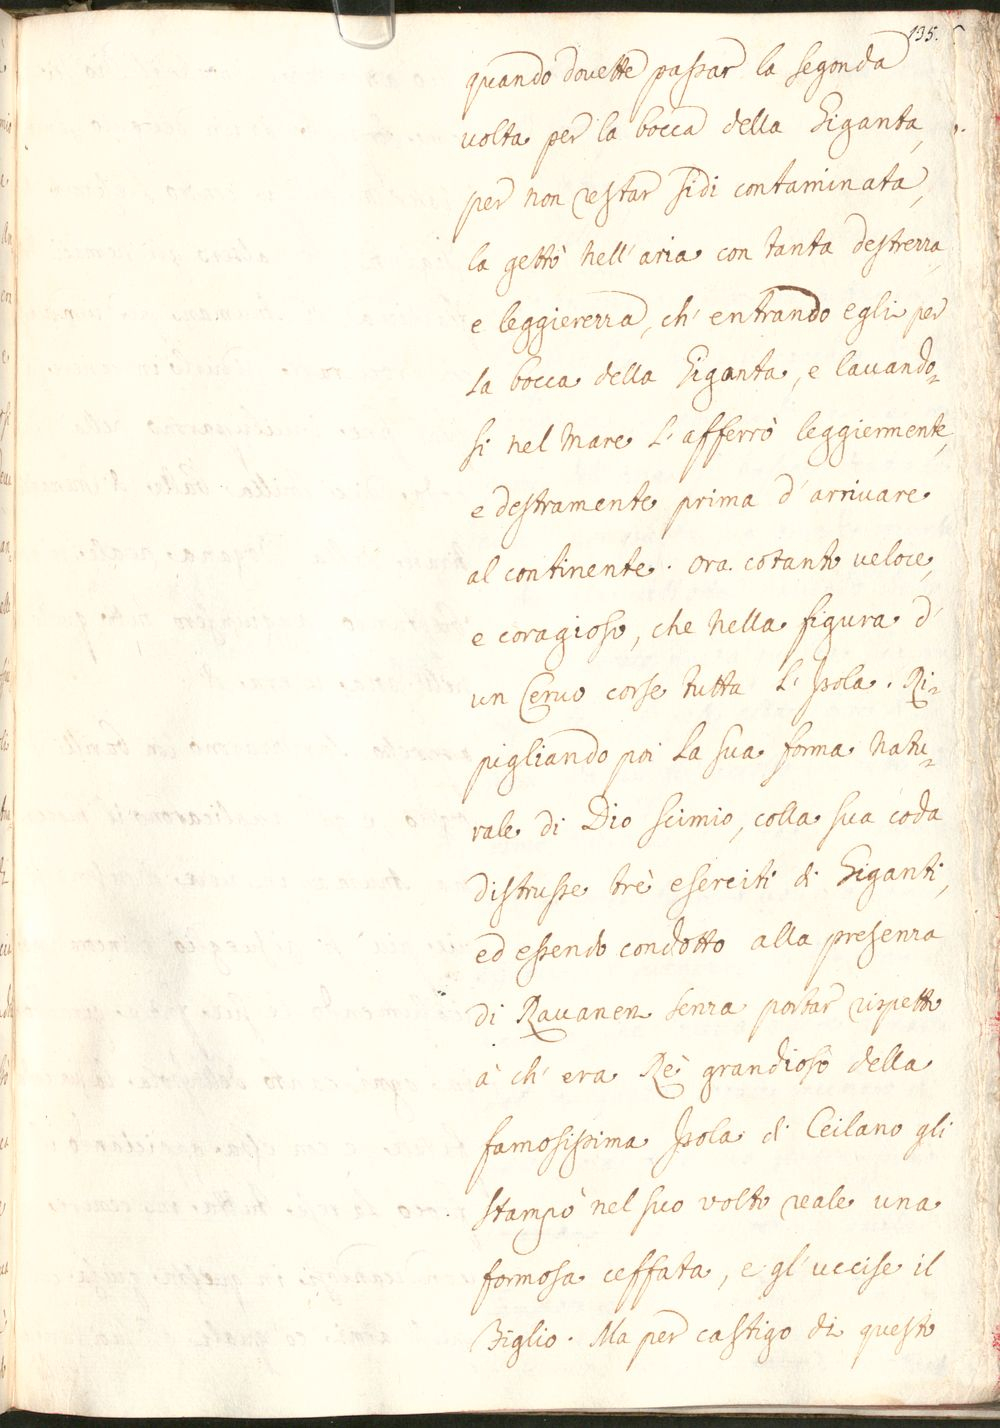 135.
quando douette passar la segonda
volta per la bocca della Giganta,
per non restar sidi contaminata,
la gettò nell' aria con tanta destrezza,
e leggierezza, ch' entrando egli per
la bocca della Giganta, e lauando-
si nel Mare l' afferrò leggiermente,
e destramente prima d' arriuare
al continente. Ora cotanto veloce,
e coragioso, che nella figura d'
un Ceruo corse tutta l' Isola. Ri-
pigliando poi la sua forma natu-
rale di Dio scimio, colla sua coda
distrusse trè eserciti di Giganti,
ed essendo condotto alla presenza
di Rauanen senza portar rispetto
à ch' era Rè grandioso della
famosissima Isola di Ceilano gli
stampò nel suo volto reale una
formosa ceffata, e gl' uccise il
Figlio. Ma per castigo di questo